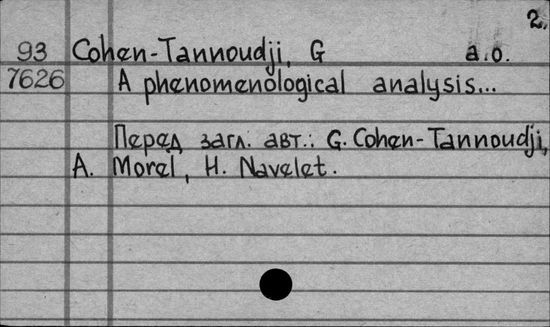 2.
93 Cohen-Tannoudji, G a.o.
7626 A phenomenological analysis...
Перед загл. авт.: G. Cohen-Tannoudji,
A. Morel, H. Navelet.